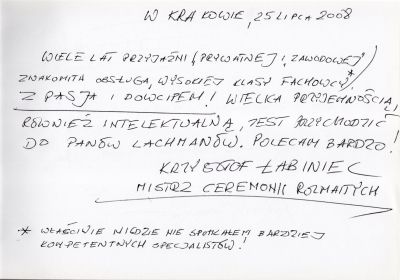 W KRAKOWIE, 25 LIPCA 2008
WIELE LAT PRZYJAŹNI (PRYWATNEJ I ZAWODOWEJ)
ZNAKOMITA OBSŁUGA, WYSOKIEJ KLASY FACHOWCY*
Z PASJĄ I DOWCIPEM! WIELKĄ PRZYJEMNOŚCIĄ,
RÓWNIEŻ INTELEKTUALNĄ, JEST PRZYCHODZIĆ
DO PANÓW LACHMANÓW. POLECAM BARDZO!
KRZYSZTOF ŁABINIEC
MISTRZ CEREMONII ROZMAITYCH
* WŁAŚCIWIE NIGDZIE NIE SPOTKAŁEM BARDZIEJ
KOMPETENTNYCH SPECJALISTÓW!